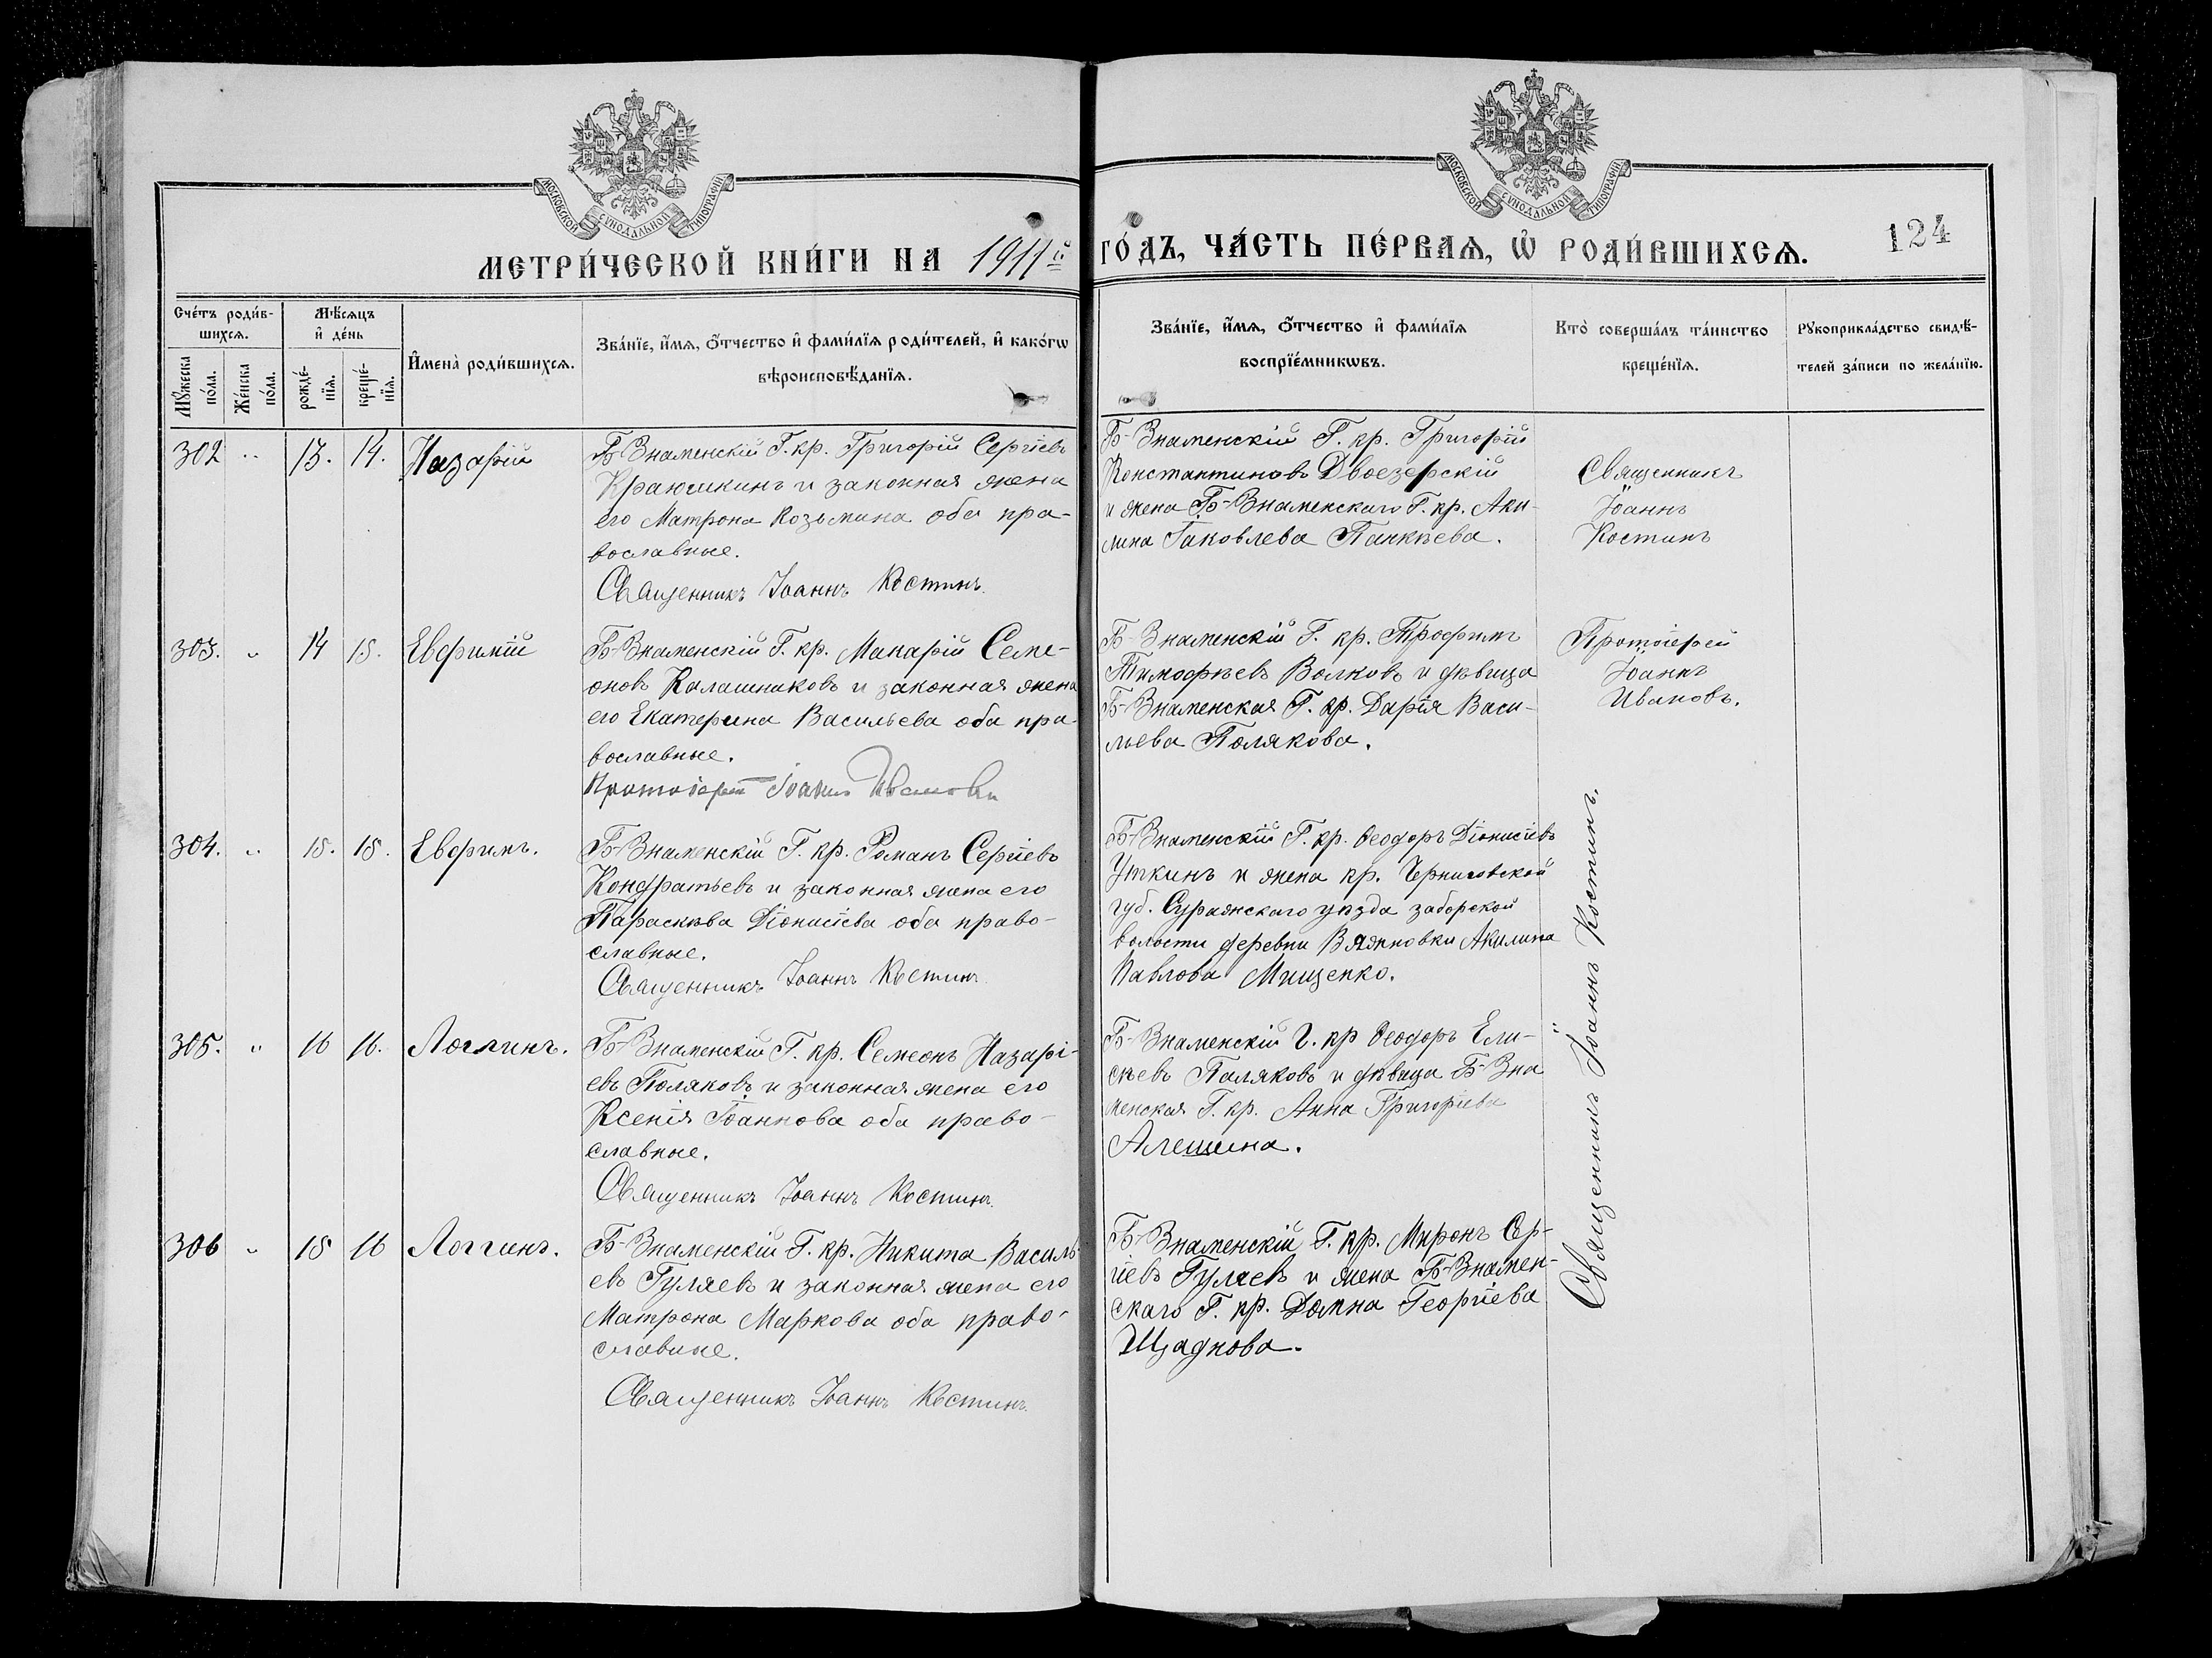 МОСКОВСКОЙ СѴНОДАЛЬНОЙ ТИПОГРАФІИ
МОСКОВСКОЙ СѴНОДАЛЬНОЙ ТИПОГРАФІИ
МЕТРИ́ЧЕСКОЙ КНИ́ГИ НА 1911й ГО́ДЪ, ЧА́СТЬ ПЕ́РВАѦ, Ѡ҆ РОДИ́ВШИХСѦ.
124
Сче́тъ роди́в-
шихсѧ.
Мꙋ́жеска по́ла.
Же́нска по́ла.
Мѣ́сѧцъ
и҆ де́нь
рожде́-
нїѧ.
креще́-
нїѧ.
И҆мена̀ роди́вшихсѧ.
Зва́нїе, и҆́мѧ, ѻ҆́тчество и҆ фами́лїѧ роди́телей, и҆ како́гѡ
вѣроисповѣ́данїѧ.
Зва́нїе, и҆́мѧ, ѻ҆́тчество и҆ фами́лїѧ
воспрїе́мникѡвъ.
Кто̀ соверша́лъ та́инство
креще́нїѧ.
Рꙋкоприкла́дство свидѣ́-
телей за́писи по жела́нїю.
302 " 13. 14. Назарій
Б-Знаменскій Г. кр. Григорій Сергіевъ
Краюшкинъ и законная жена
его Матрона Козьмина оба пра-
вославные.
Священникъ Іоаннъ Костинъ.
Б-Знаменскій Г. кр. Григорій
Константиновъ Двоезерскій
и жена Б-Знаменскаго Г. кр. Аки-
лина Іаковлева Панкѣева.
Священникъ
Іоаннъ
Костинъ
303. " 14 15. Евфимій
Б-Знаменскій Г. кр. Макарій Семе-
оновъ Калашниковъ и законная жена
его Екатерина Васильева оба пра-
вославные.
Протоіерей Іоаннъ Ивановъ
Б-Знаменскій Г. кр. Трофимъ
Тимофѣевъ Волковъ и дѣвица
Б-Знаменская Г. кр. Дарія Васи-
льева Полякова.
Протоіерей
Іоаннъ
Ивановъ.
304. " 15. 15. Евфимъ.
Б-Знаменскій Г. кр. Романъ Сергіевъ
Кондратьевъ и законная жена его
Параскѣва Діонисіева оба право-
славные.
Священникъ Іоаннъ Костинъ
Б-Знаменскій Г. кр. Ѳеодоръ Діонисіевъ
Уткинъ и жена кр. Черниговской
губ. Суражскаго уѣзда заборской
волости деревни Вяжновки Акилина
Павлова Мищенко.
305. " 16 16. Логгинъ.
Б-Знаменскій Г. кр. Семеонъ Назарі-
евъ Поляковъ и законная жена его
Ксенія Іоаннова оба право-
славные.
Священникъ Іоаннъ Костинъ.
Б-Знаменскій Г. кр Ѳеодоръ Ели-
сѣевъ Паляковъ и дѣвица Б-Зна
менская Г. кр. Анна Григоріева
Алешина.
306 " 15 16 Логгинъ.
Б-Знаменскій Г. кр. Никита Василь-
евъ Гуляевъ и законная жена его
Матрона Маркова оба право-
славные.
Священникъ Іоаннъ Костинъ.
Б-Знаменскій Г. кр. Миронъ Сер-
гіевъ Гуляевъ и жена Б-Знамен-
скаго Г. кр. Домна Георгіева
Щаднова.
Священникъ Іоаннъ Костинъ.